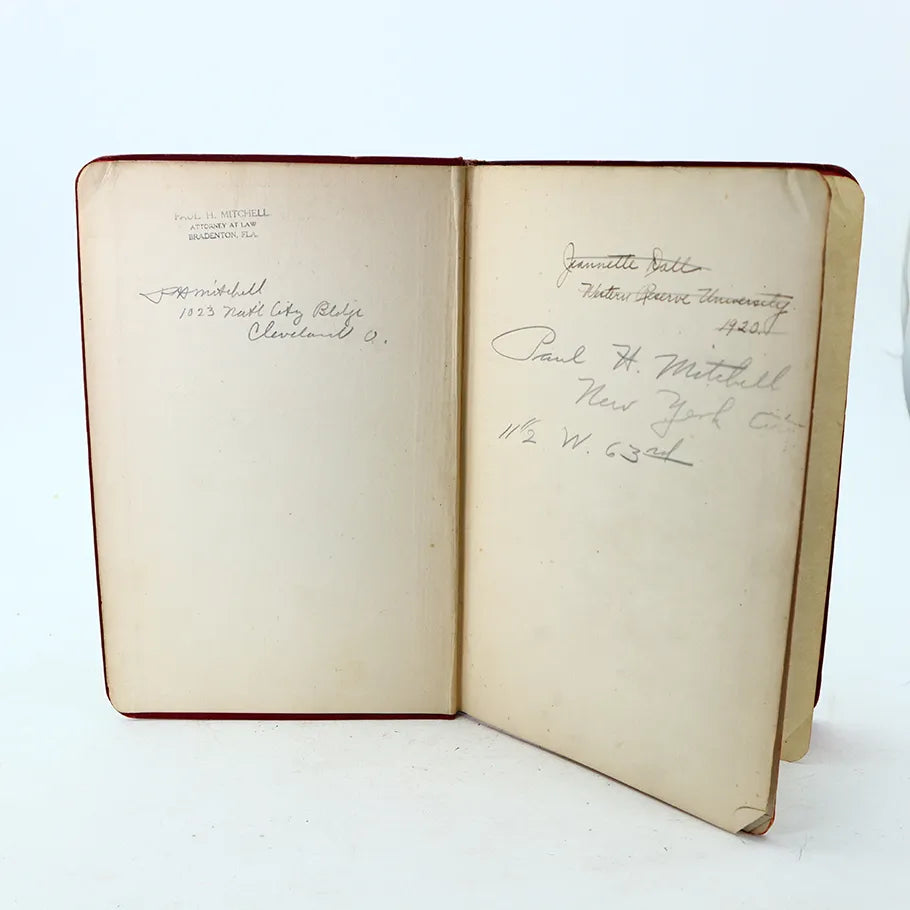 PAUL H. MITCHELL
ATTORNEY AT LAW
BRADENTON, FLA.
P H Mitchell
1023 Nat'l City Bldg
Cleveland O.
Jeannette Dall
Western Reserve University
1920
Paul H. Mitchell
New York City
112 W. 63rd